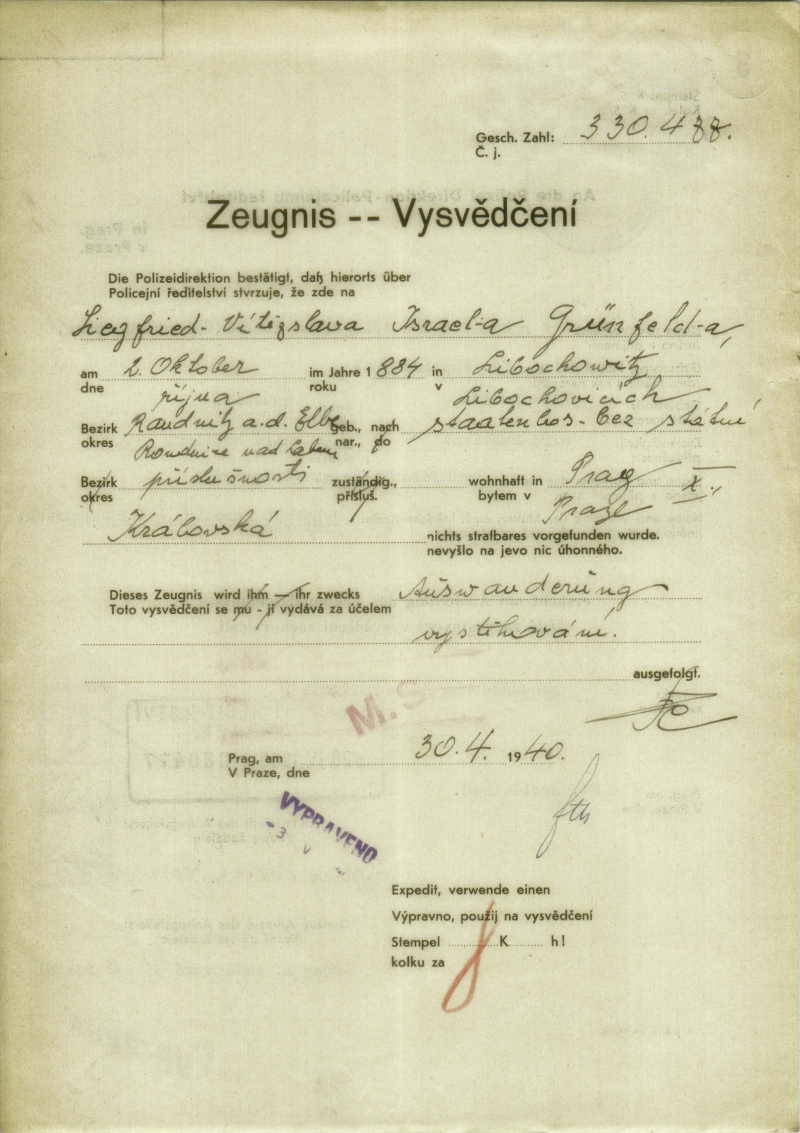 Gesch. Zahl: 330.488.
Č. j.
Zeugnis -- Vysvědčení
Die Polizeidirektion bestätigt, daß hierorts über
Policejní ředitelství stvrzuje, že zde na
Siegfried - Vítězslava Israel-a Grünfeld-a,
am 2. Oktober im Jahre 1884 in Libochowitz
dne října roku v Libochovicích
Bezirk Raudnitz a.d. Elbe geb., nach staatenlos - bez státní
okres Roudnice nad Labem nar., do
Bezirk příslušnosti zuständig., wohnhaft in Prag X.,
okres přísluš. bytem v Praze
Královská nichts strafbares vorgefunden wurde.
nevyšlo na jevo nic úhonného.
Dieses Zeugnis wird ihm — ihr zwecks Auswanderung
Toto vysvědčení se mu - jí vydává za účelem
vystěhování.
ausgefolgt.
Prag, am 30.4. 1940.
V Praze, dne
VYPRAVENO
-3 V
Expedit, verwende einen
Výpravno, použij na vysvědčení
Stempel K h!
kolku za